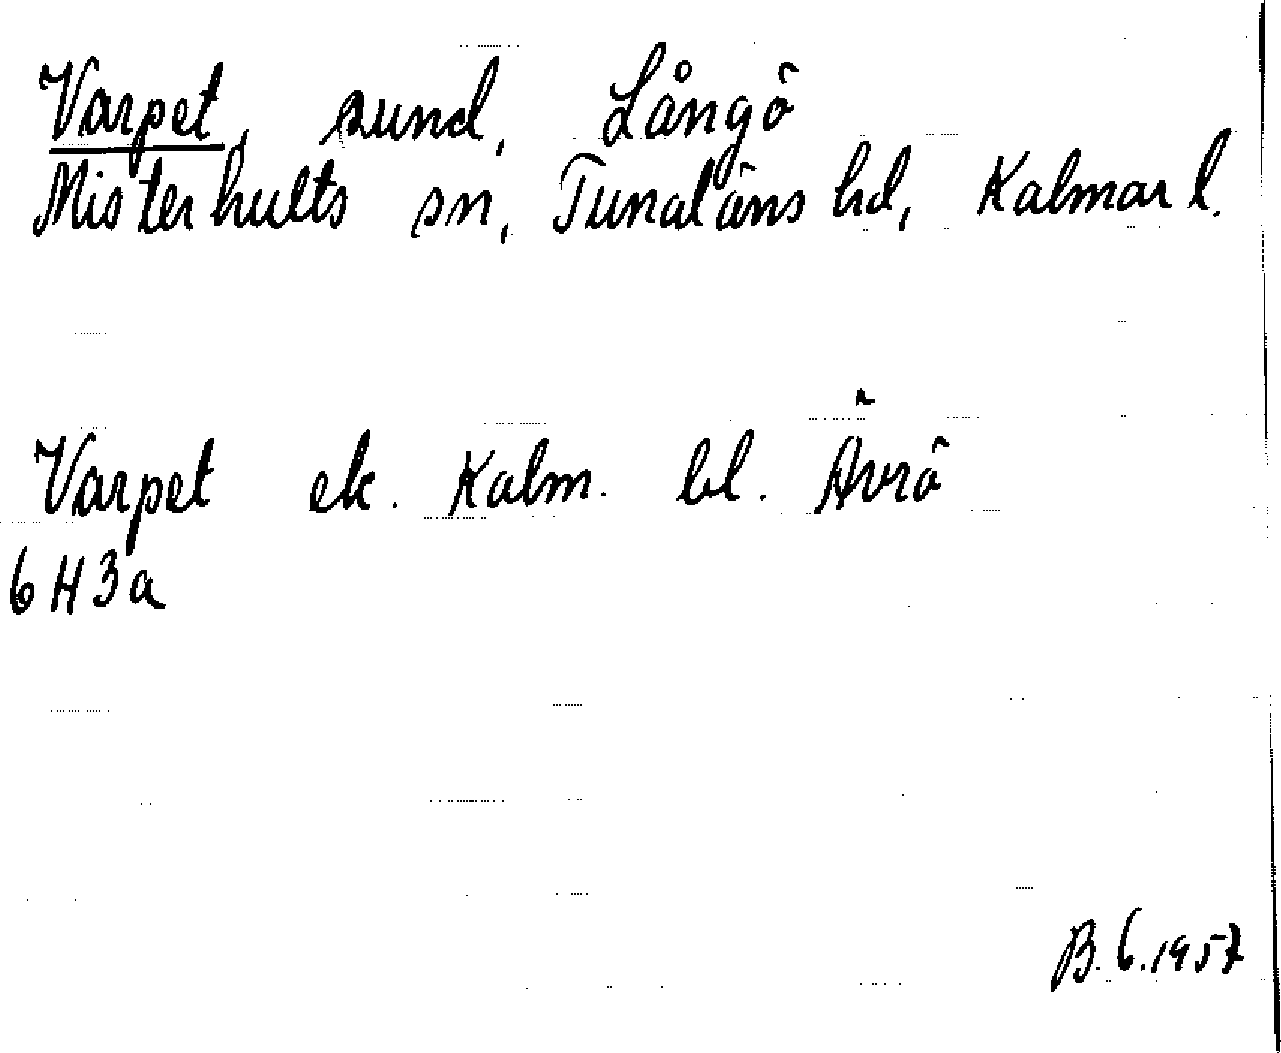 Varpet, sund, Långö
Misterhults sn, Tunaläns hd, Kalmar l.
Varpet ek. Kalm. bl. Ävrö
6 H 3 a
B. 6. 1957